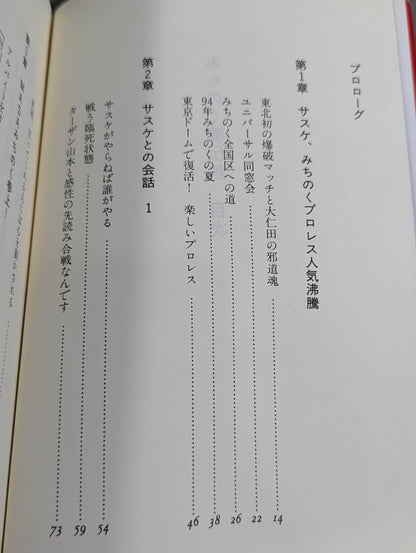 プロローグ
第1章 サスケ、みちのくプロレス人気沸騰
東北初の爆破マッチと大仁田の邪道魂 14
ユニバーサル同窓会 22
みちのく全国区への道 26
94年みちのくの夏 38
東京ドームで復活！ 楽しいプロレス 46
第2章 サスケとの会話 1
サスケがやらねば誰がやる 54
戦う臨死状態 59
ターザン山本と感性の先読み合戦なんです 73